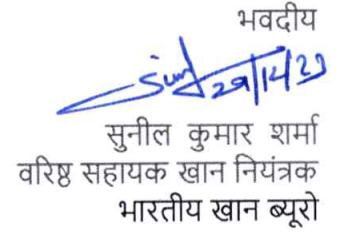 भवदीय
29/12/23
सुनील कुमार शर्मा
वरिष्ठ सहायक खान नियंत्रक
भारतीय खान ब्यूरो